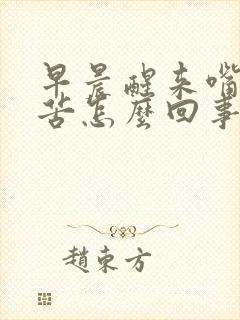 早晨醒来嘴
苦怎麽回事
趙東方